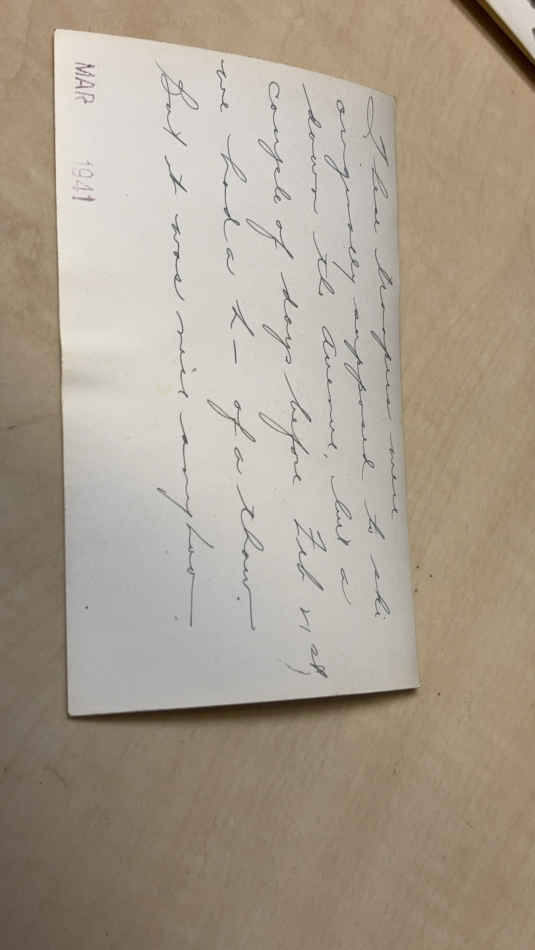 These troopers were
originally supposed to ski
down the avenue, but a
couple of days before Feb 21st,
we had a h— of a thaw.
But it was nice anyhoo.
MAR 1941